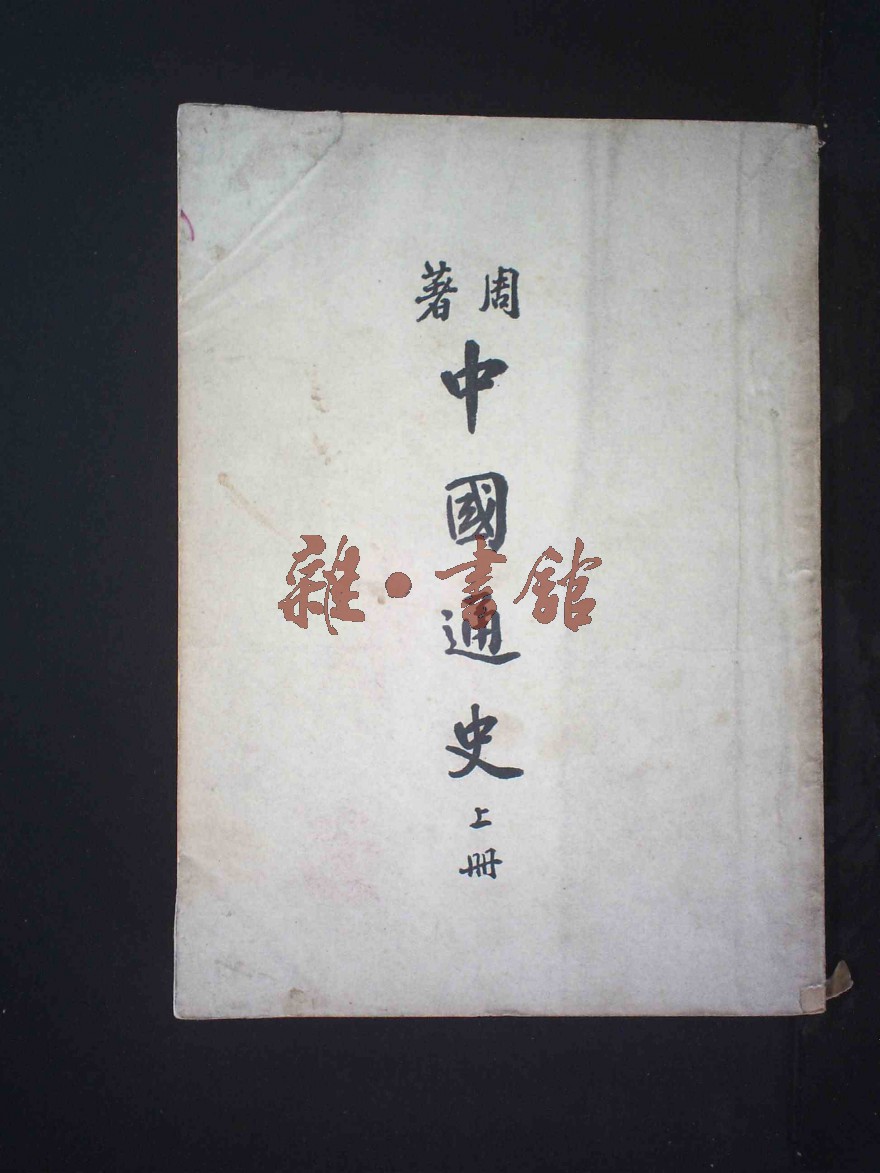 周著
中國通史
上册
雜·書館